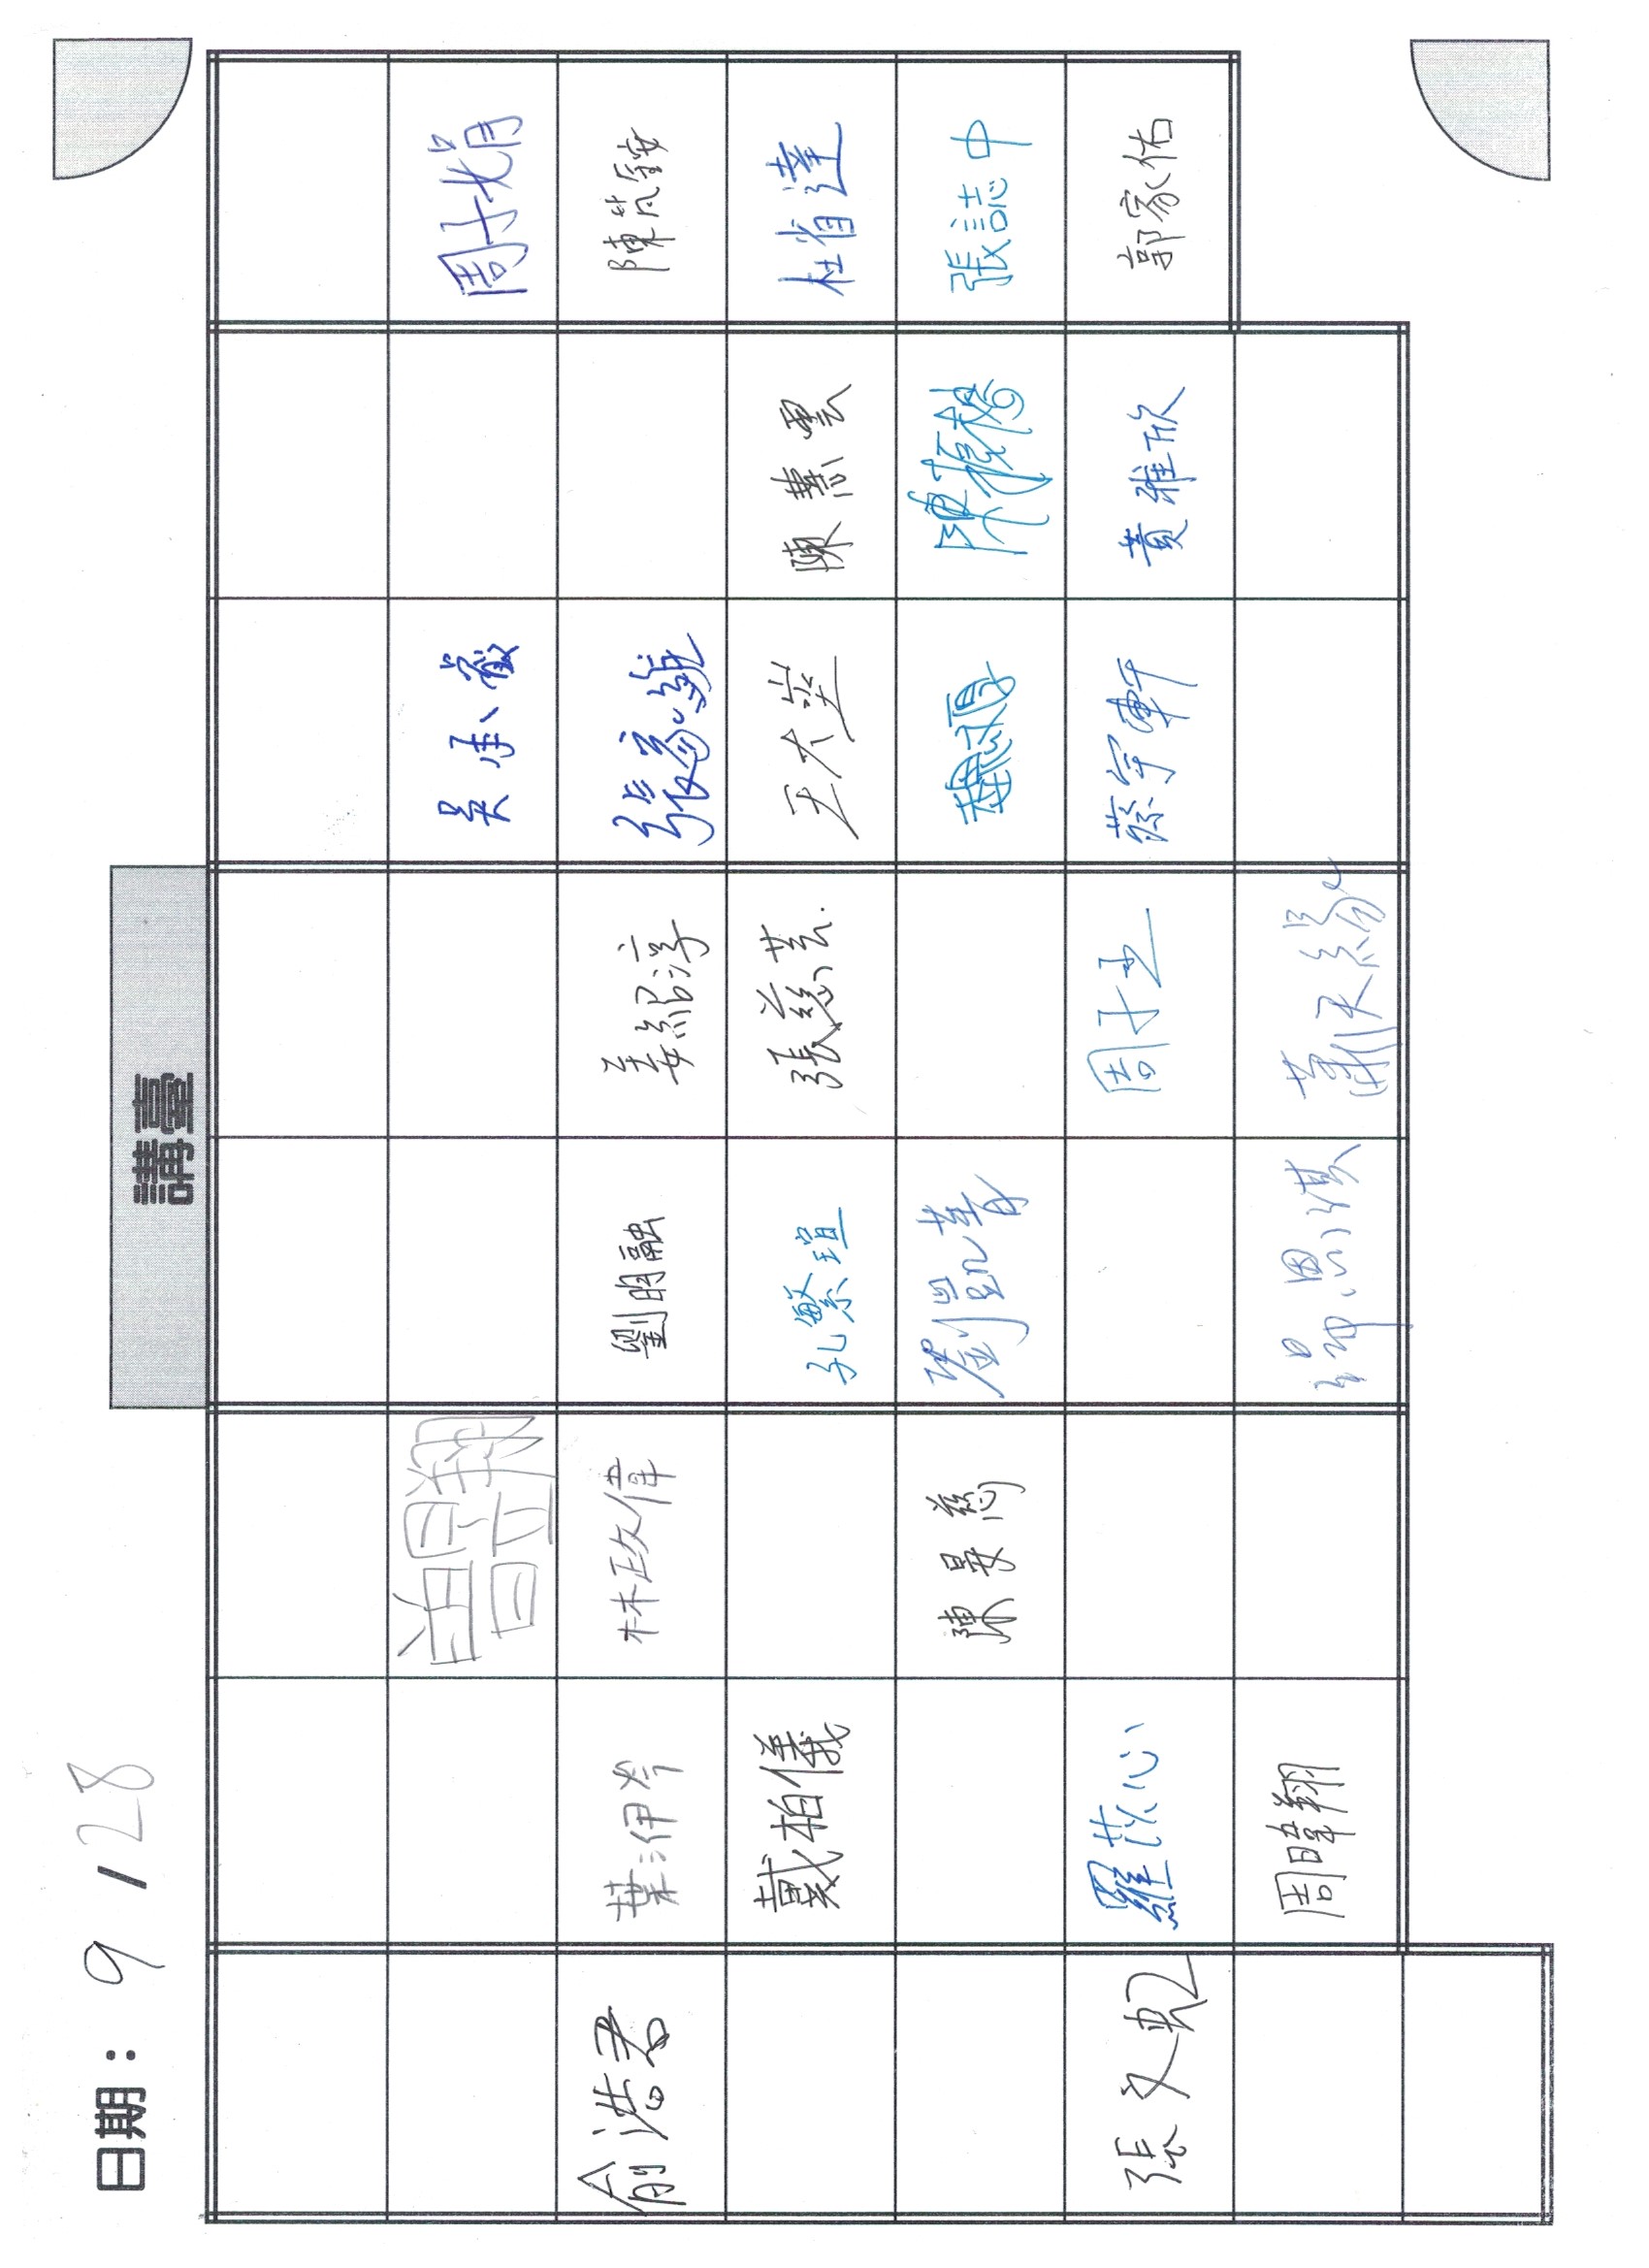 日期： 9 / 28
講臺
曾昱翔 吳承叡 周子娟
俞浩君 葉洢岑 林政偉 劉明融 姜紹淳 張家維 陳芃銨
戴柏儀 孔繁瑄 張慈芸 王大崟 陳蕙雲 杜省達
陳旻慈 劉凱菁 張誌中
張文馼 羅苡心 周子丞 蔡宇軒 黃雅欣 郭家佑
周暐翔 蕭天緣